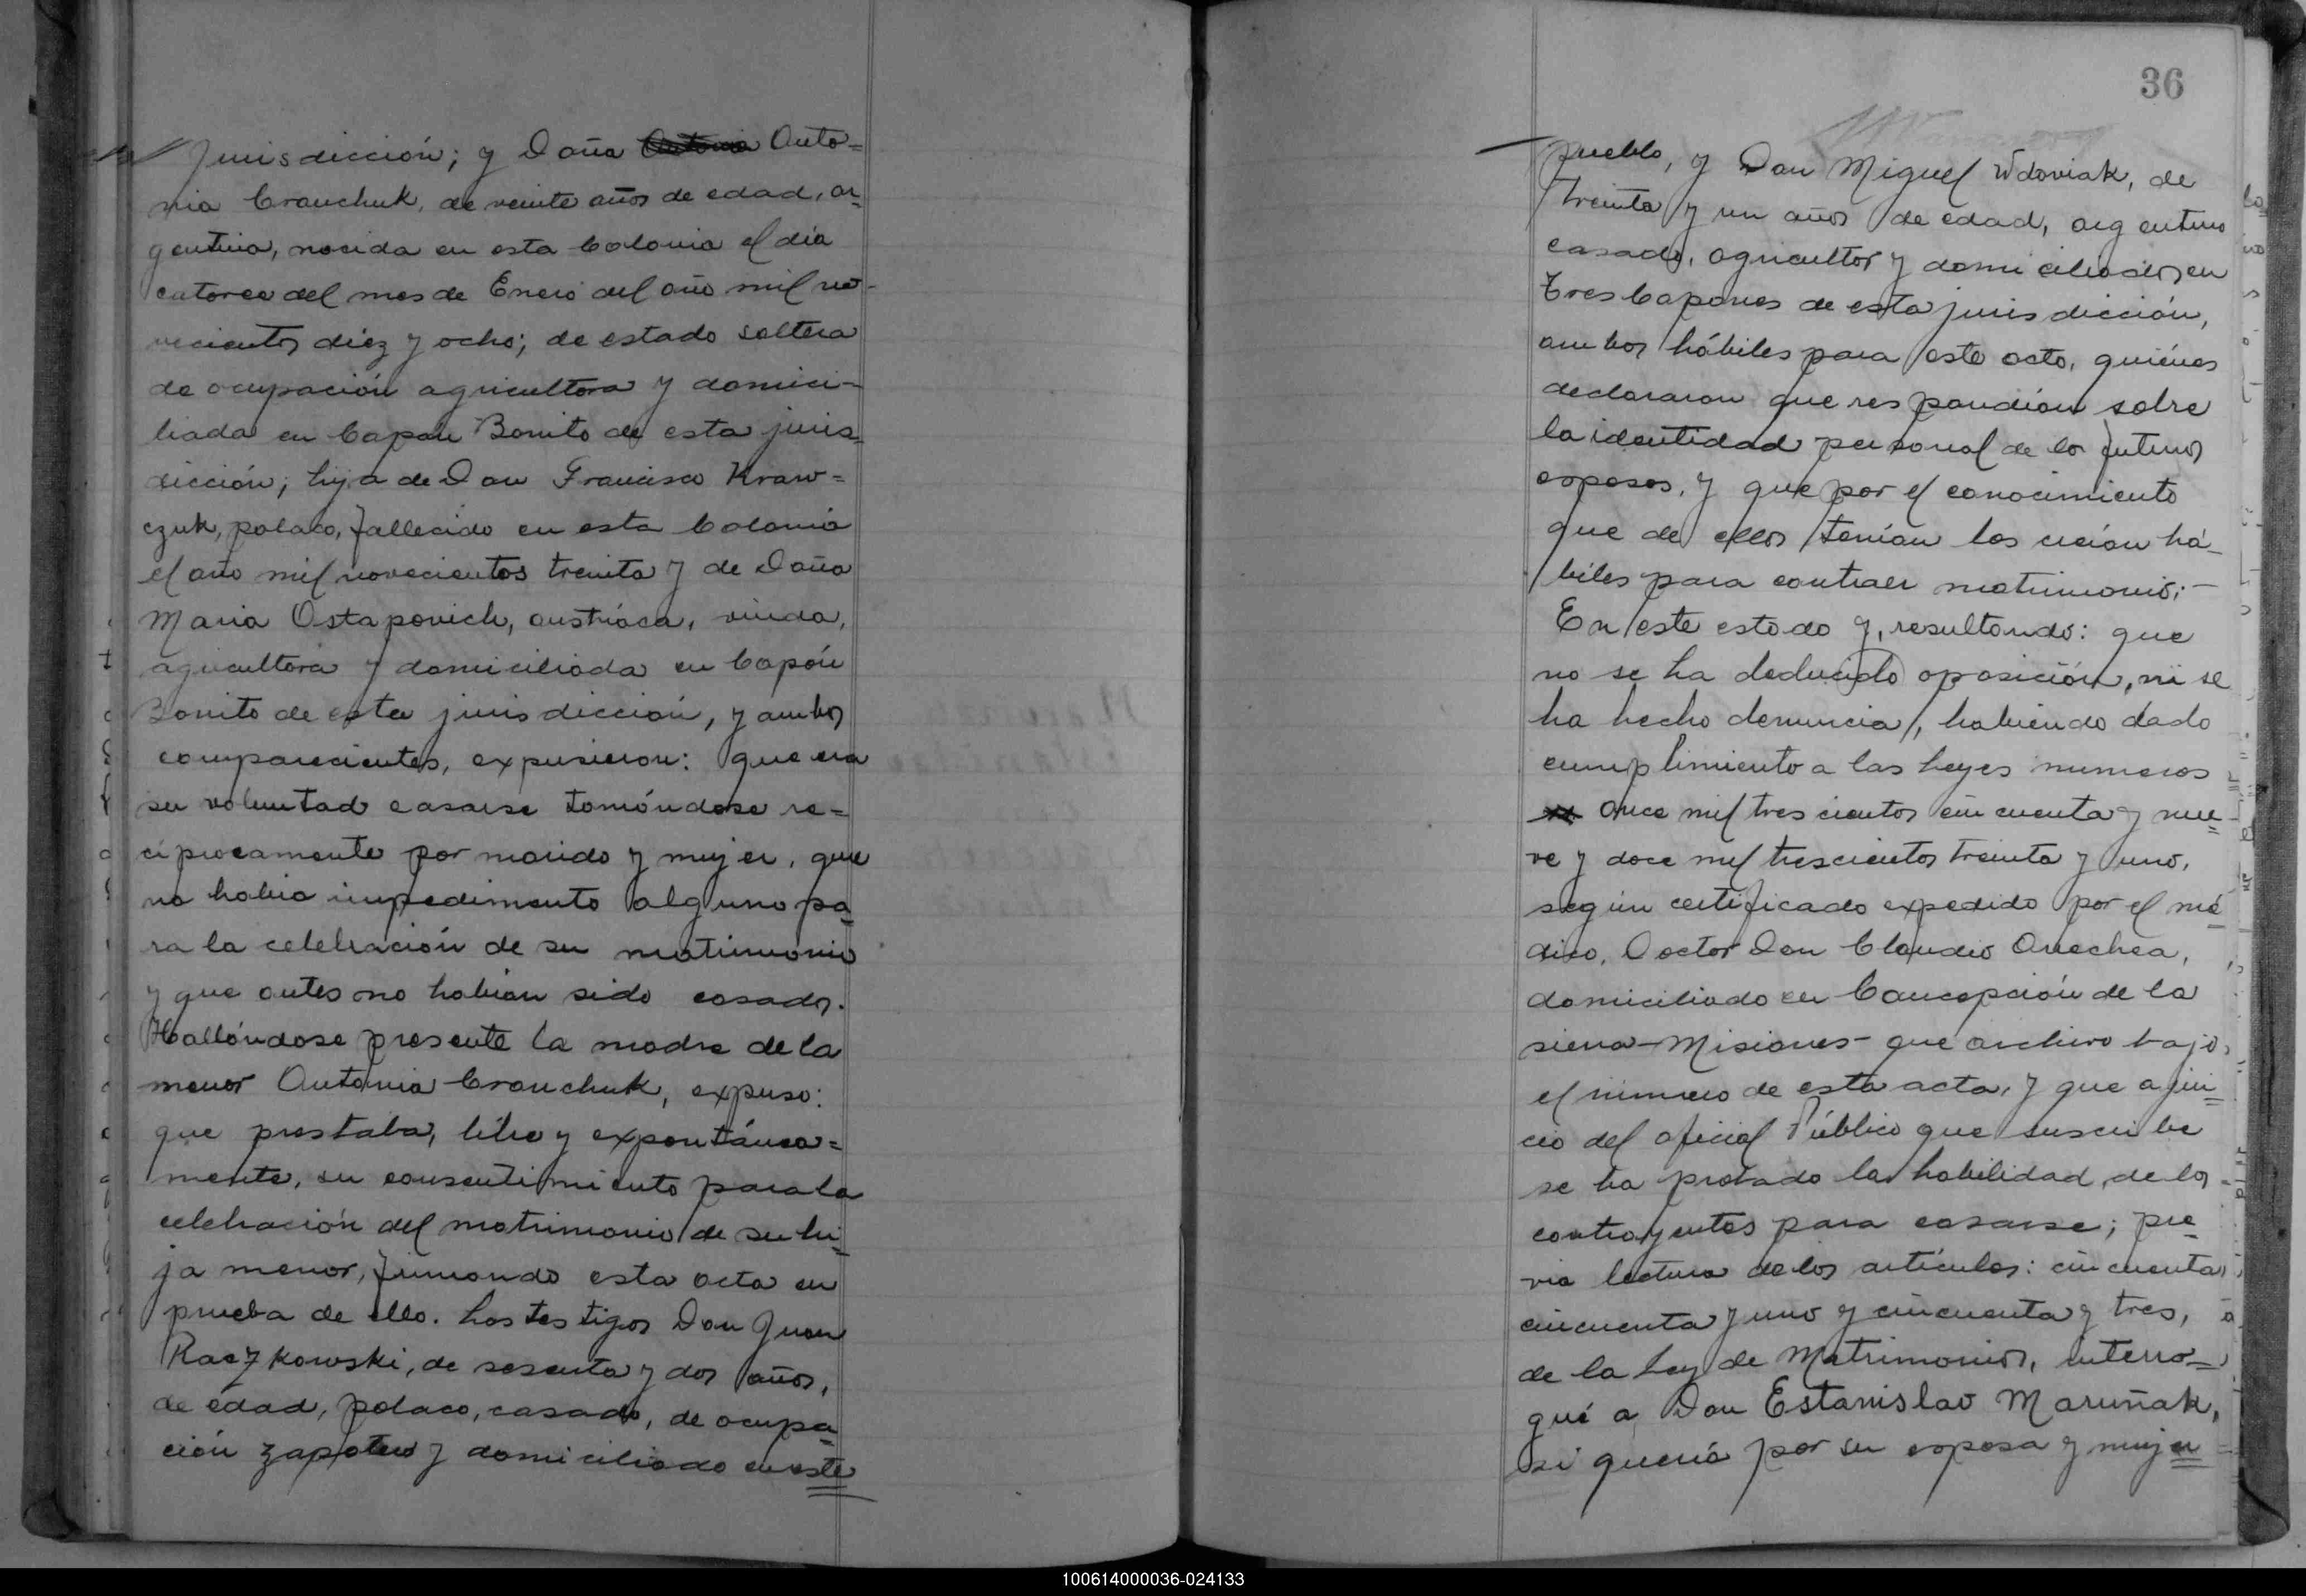 Jurisdicción; y Doña Anto=
nia Cranchuk, de veinte años de edad, ar
gentina, nacida en esta Colonia el día
catorce del mes de Enero del año mil no-
vecientos diéz y ocho; de estado soltera
de ocupación agricultora y domici-
liada en Capón Bonito de esta juris-
dicción; hija de Don Francisco Kraw=
czuk, polaco, fallecido en esta Colonia
el año mil novecientos treinta y de Doña
Maria Ostapovich, austríaca, viuda,
agricultora y domiciliada en Capón
Bonito de esta jurisdicción, y ambos
comparecientes, expusieron: que era
su voluntad casarse tomándose re=
ciprocamente por marido y mujer, que
no había impedimento alguno pa
ra la celebración de su matrimonio
y que antes no habían sido casados.
Hallándose presente la madre de la
menor Antonia Cranchuk, expuso:
que prestaba, libre y expontánea=
mente, su consentimiento para la
celebración del matrimonio de su hi
ja menor, firmando esta acta en
prueba de ello. Los testigos Don Juan
Raczkowski, de sesenta y dos años,
de edad, polaco, casado, de ocupa
ción zapatero y domiciliado en este
36
pueblo, y Don Miguel Wdoviak, de
treinta y un años de edad, argentino
casado, agricultor y domiciliados en
Tres Capones de esta jurisdicción,
ambos hábiles para este acto, quiénes
declararon que respondían sobre
la identidad personal de los futuros
esposos, y que por el conocimiento
que de ellos tenían los creían há-
biles para contraer matrimonio;-
En este estado y, resultando: que
no se ha deducido oposición, ni se
ha hecho denuncia, habiendo dado
cumplimiento a las Leyes numeros
once mil trescientos cincuenta y nue
ve y doce mil trescientos treinta y uno,
según certificado expedido por el mé
dico, Doctor Don Claudio Arrechea,
domiciliado en Concepción de la
sierra-Misiones- que archivo bajo
el número de esta acta, y que a jui
cio del oficial Público que suscribe
se ha probado la habilidad de los
contrayentes para casarse; pre
via lectura de los artículos: cincuenta
cincuenta y uno y cincuenta y tres,
de la Ley de Matrimonios, interro=
gué a Don Estanislao Maruñak,
si quería por su esposa y mujer
100614000036-024133